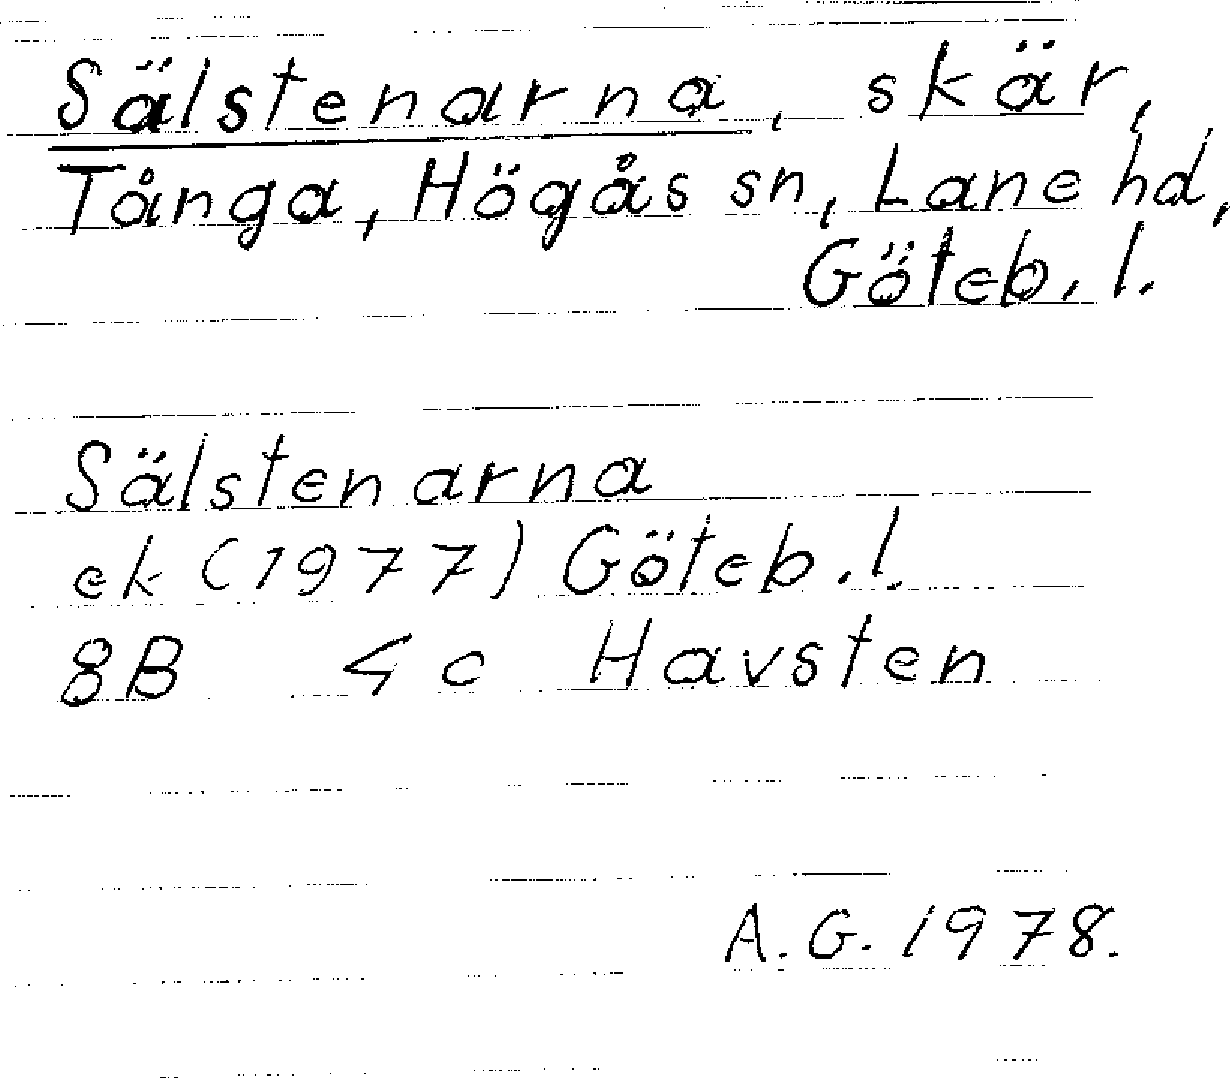 Sälstenarna, skär,
Tånga, Högås sn, Lane hd,
Göteb. l.
Sälstenarna
ek (1977) Göteb. l.
8B 4c Havsten
A. G. 1978.